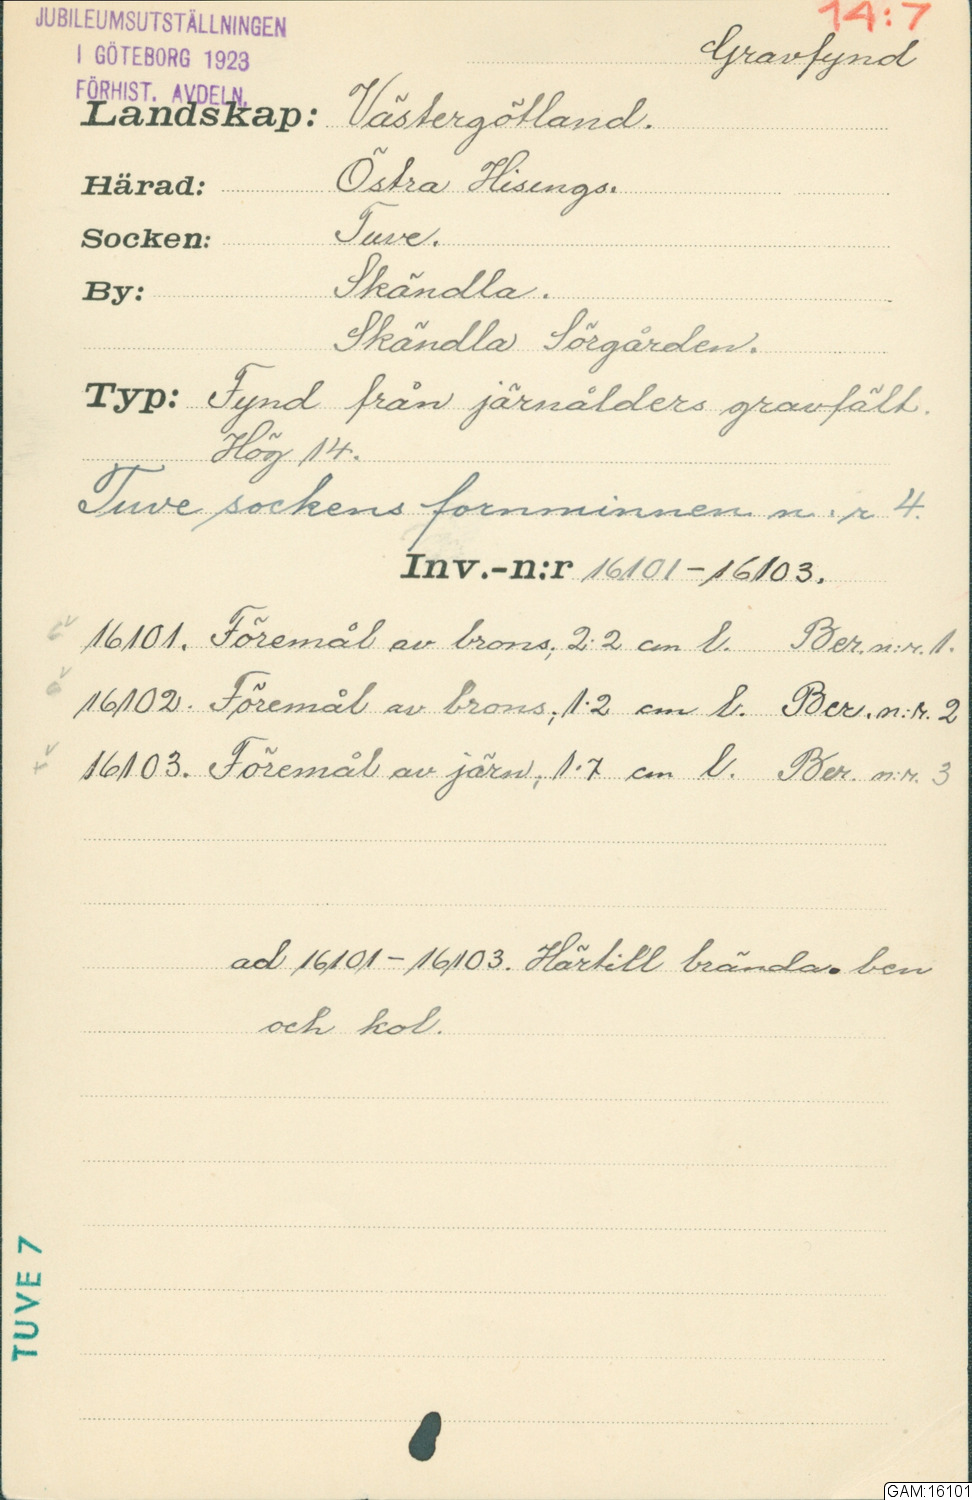 JUBILEUMSUTSTÄLLNINGEN
I GÖTEBORG 1923
FÖRHIST. AVDELN.
14:7
Gravfynd
Landskap: Västergötland.
Härad: Östra Hisings.
Socken: Tuve.
By: Skändla.
Skändla Sörgården.
Typ: Fynd från järnålders gravfält.
Hög 14.
Tuve sockens fornminnen n:r 4.
Inv.-n:r 16101-16103.
16101. Föremål av brons; 2·2 cm l. Ber. n:r. 1.
16102. Föremål av brons; 1·2 cm l. Ber. n:r. 2
16103. Föremål av järn; 1·7 cm l. Ber. n:r. 3
ad 16101-16103. Härtill brända ben
och kol.
TUVE 7
GAM:16101